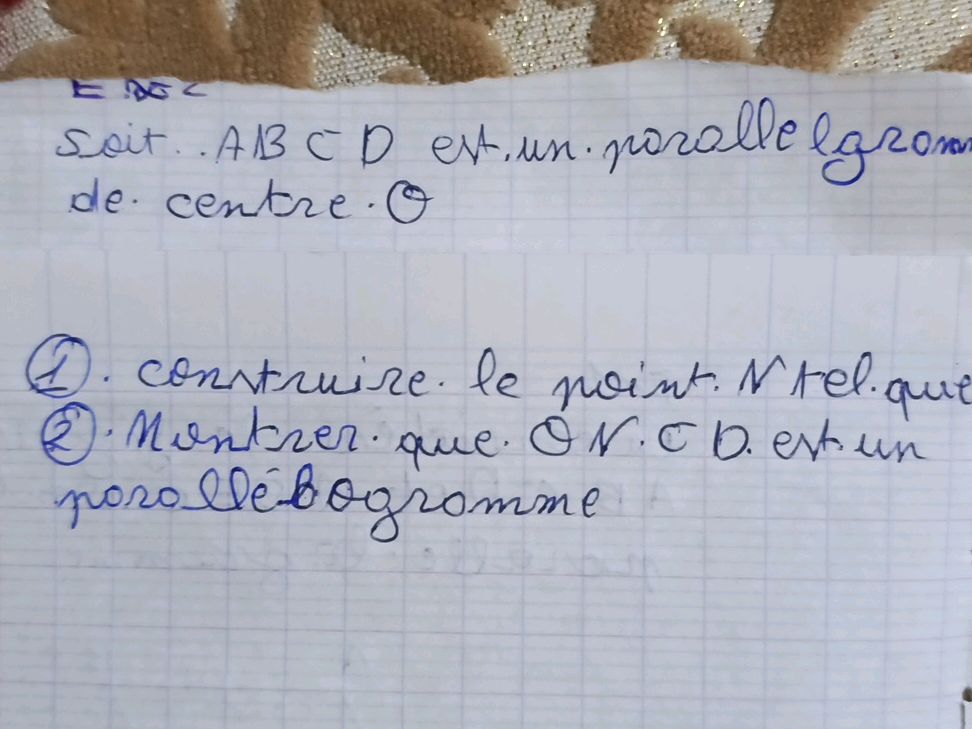 Soit. . ABCD est. un. parallelgramm
de. centre. O
①. construire. le point. N tel. que
②. Montrer. que. ON. CD. est. un
parallélogramme